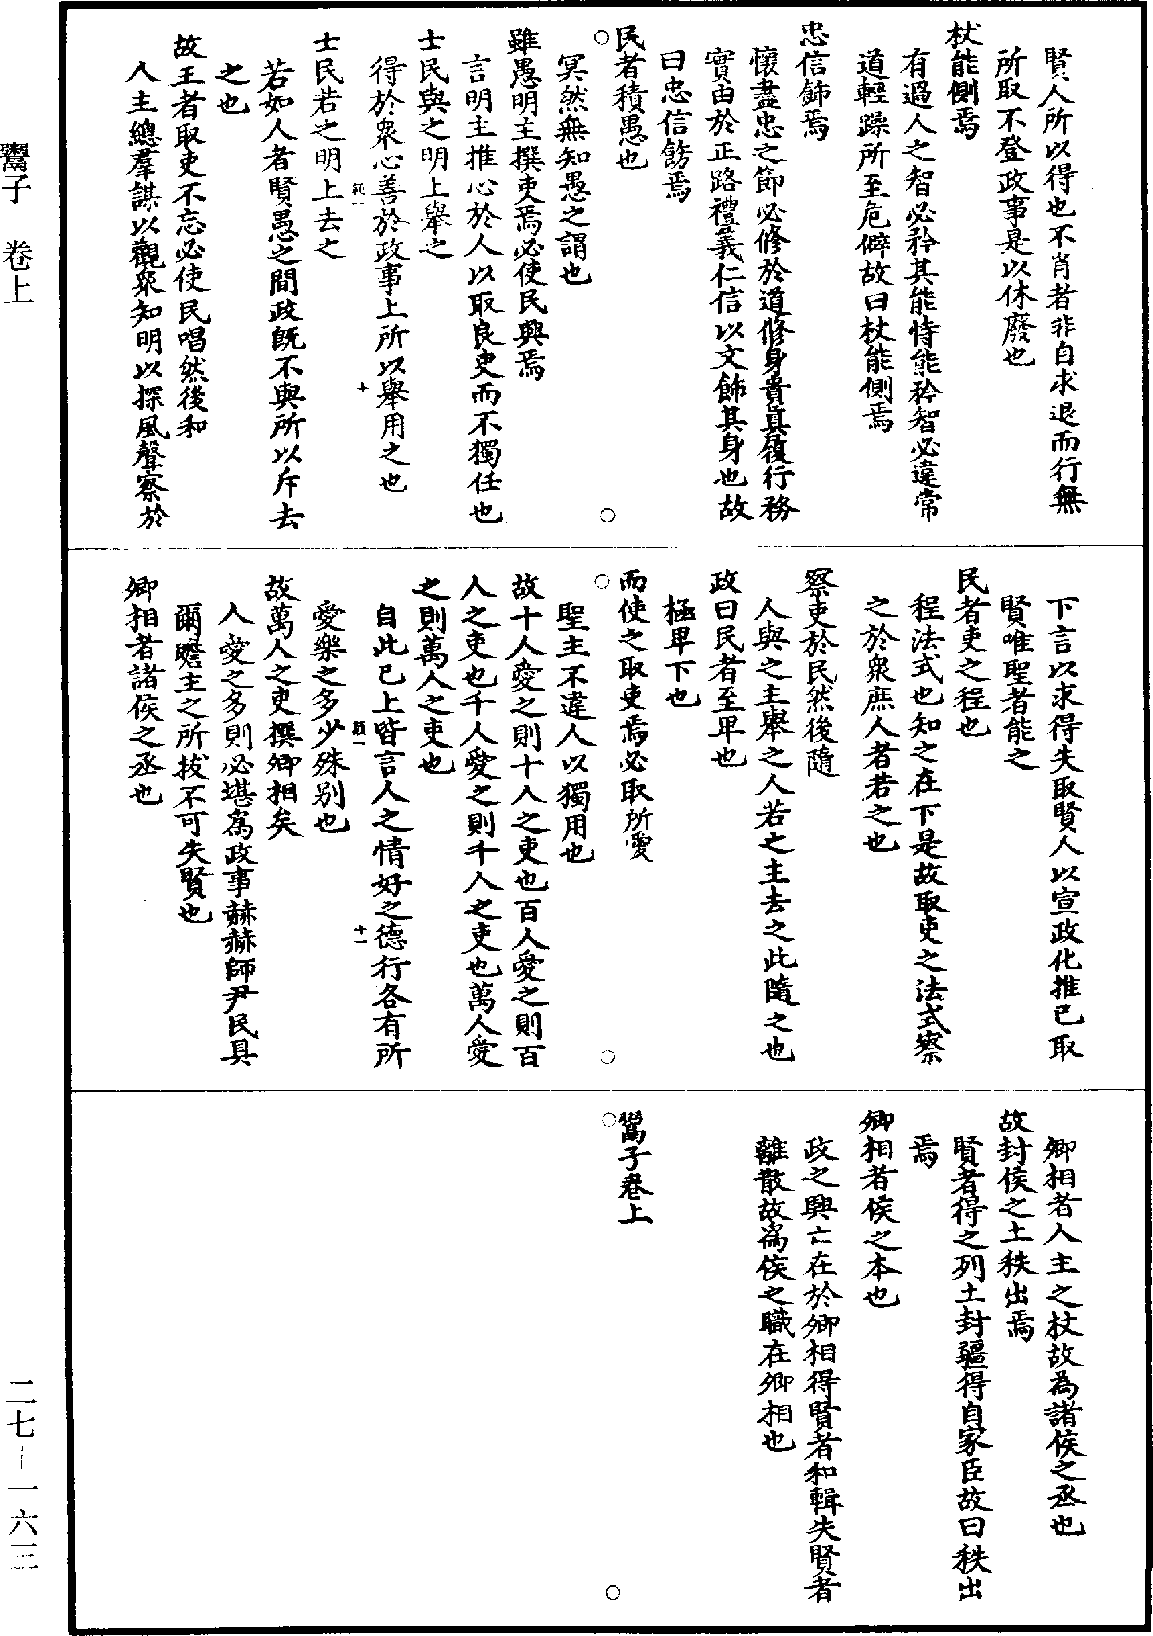 賢人所以得也不肖者非自求退而行無
所取不登政事是以休廢也
杖能側焉
有過人之智必矜其能恃能矜智必違常
道輕躁所至危僻故曰杖能側焉
忠信飾焉
懷盡忠之節必修於道修身貴真履行務
實由於正路禮義仁信以文飾其身也故
曰忠信飾焉
民者積愚也
冥然無知愚之謂也
雖愚明主撰吏焉必使民興焉
言明主推心於人以取良吏而不獨任也
士民與之明上舉之
得於衆心善於政事上所以舉用之也
士民若之明上去之
若如人者賢愚之間政既不與所以斥去
之也
故王者取吏不忘必使民唱然後和
人主總羣謀以觀衆知明以探風聲察於
下言以求得失取賢人以宣政化推已取
賢唯聖者能之
民者吏之程也
程法式也知之在下是故取吏之法式察
之於衆庶人者若之也
察吏於民然後隨
人與之主舉之人若之主去之此隨之也
政曰民者至卑也
極卑下也
而使之取吏焉必取所愛
聖主不違人以獨用也
故十人愛之則十人之吏也百人愛之則百
人之吏也千人愛之則千人之吏也萬人愛
之則萬人之吏也
自此已上皆言人之情好之德行各有所
愛樂之多少殊别也
故萬人之吏撰卿相矣
人愛之多則必堪爲政事赫赫師尹民具
爾瞻主之所拔不可失賢也
卿相者諸侯之丞也
卿相者人主之杖故為諸侯之丞也
故封侯之土秩出焉
賢者得之列土封疆得自家臣故曰秩出
焉
卿相者侯之本也
政之興亡在於卿相得賢者和輯失賢者
離散故為侯之職在卿相也
鬻子卷上
鬻子 卷上
二七－一六三
十
十一